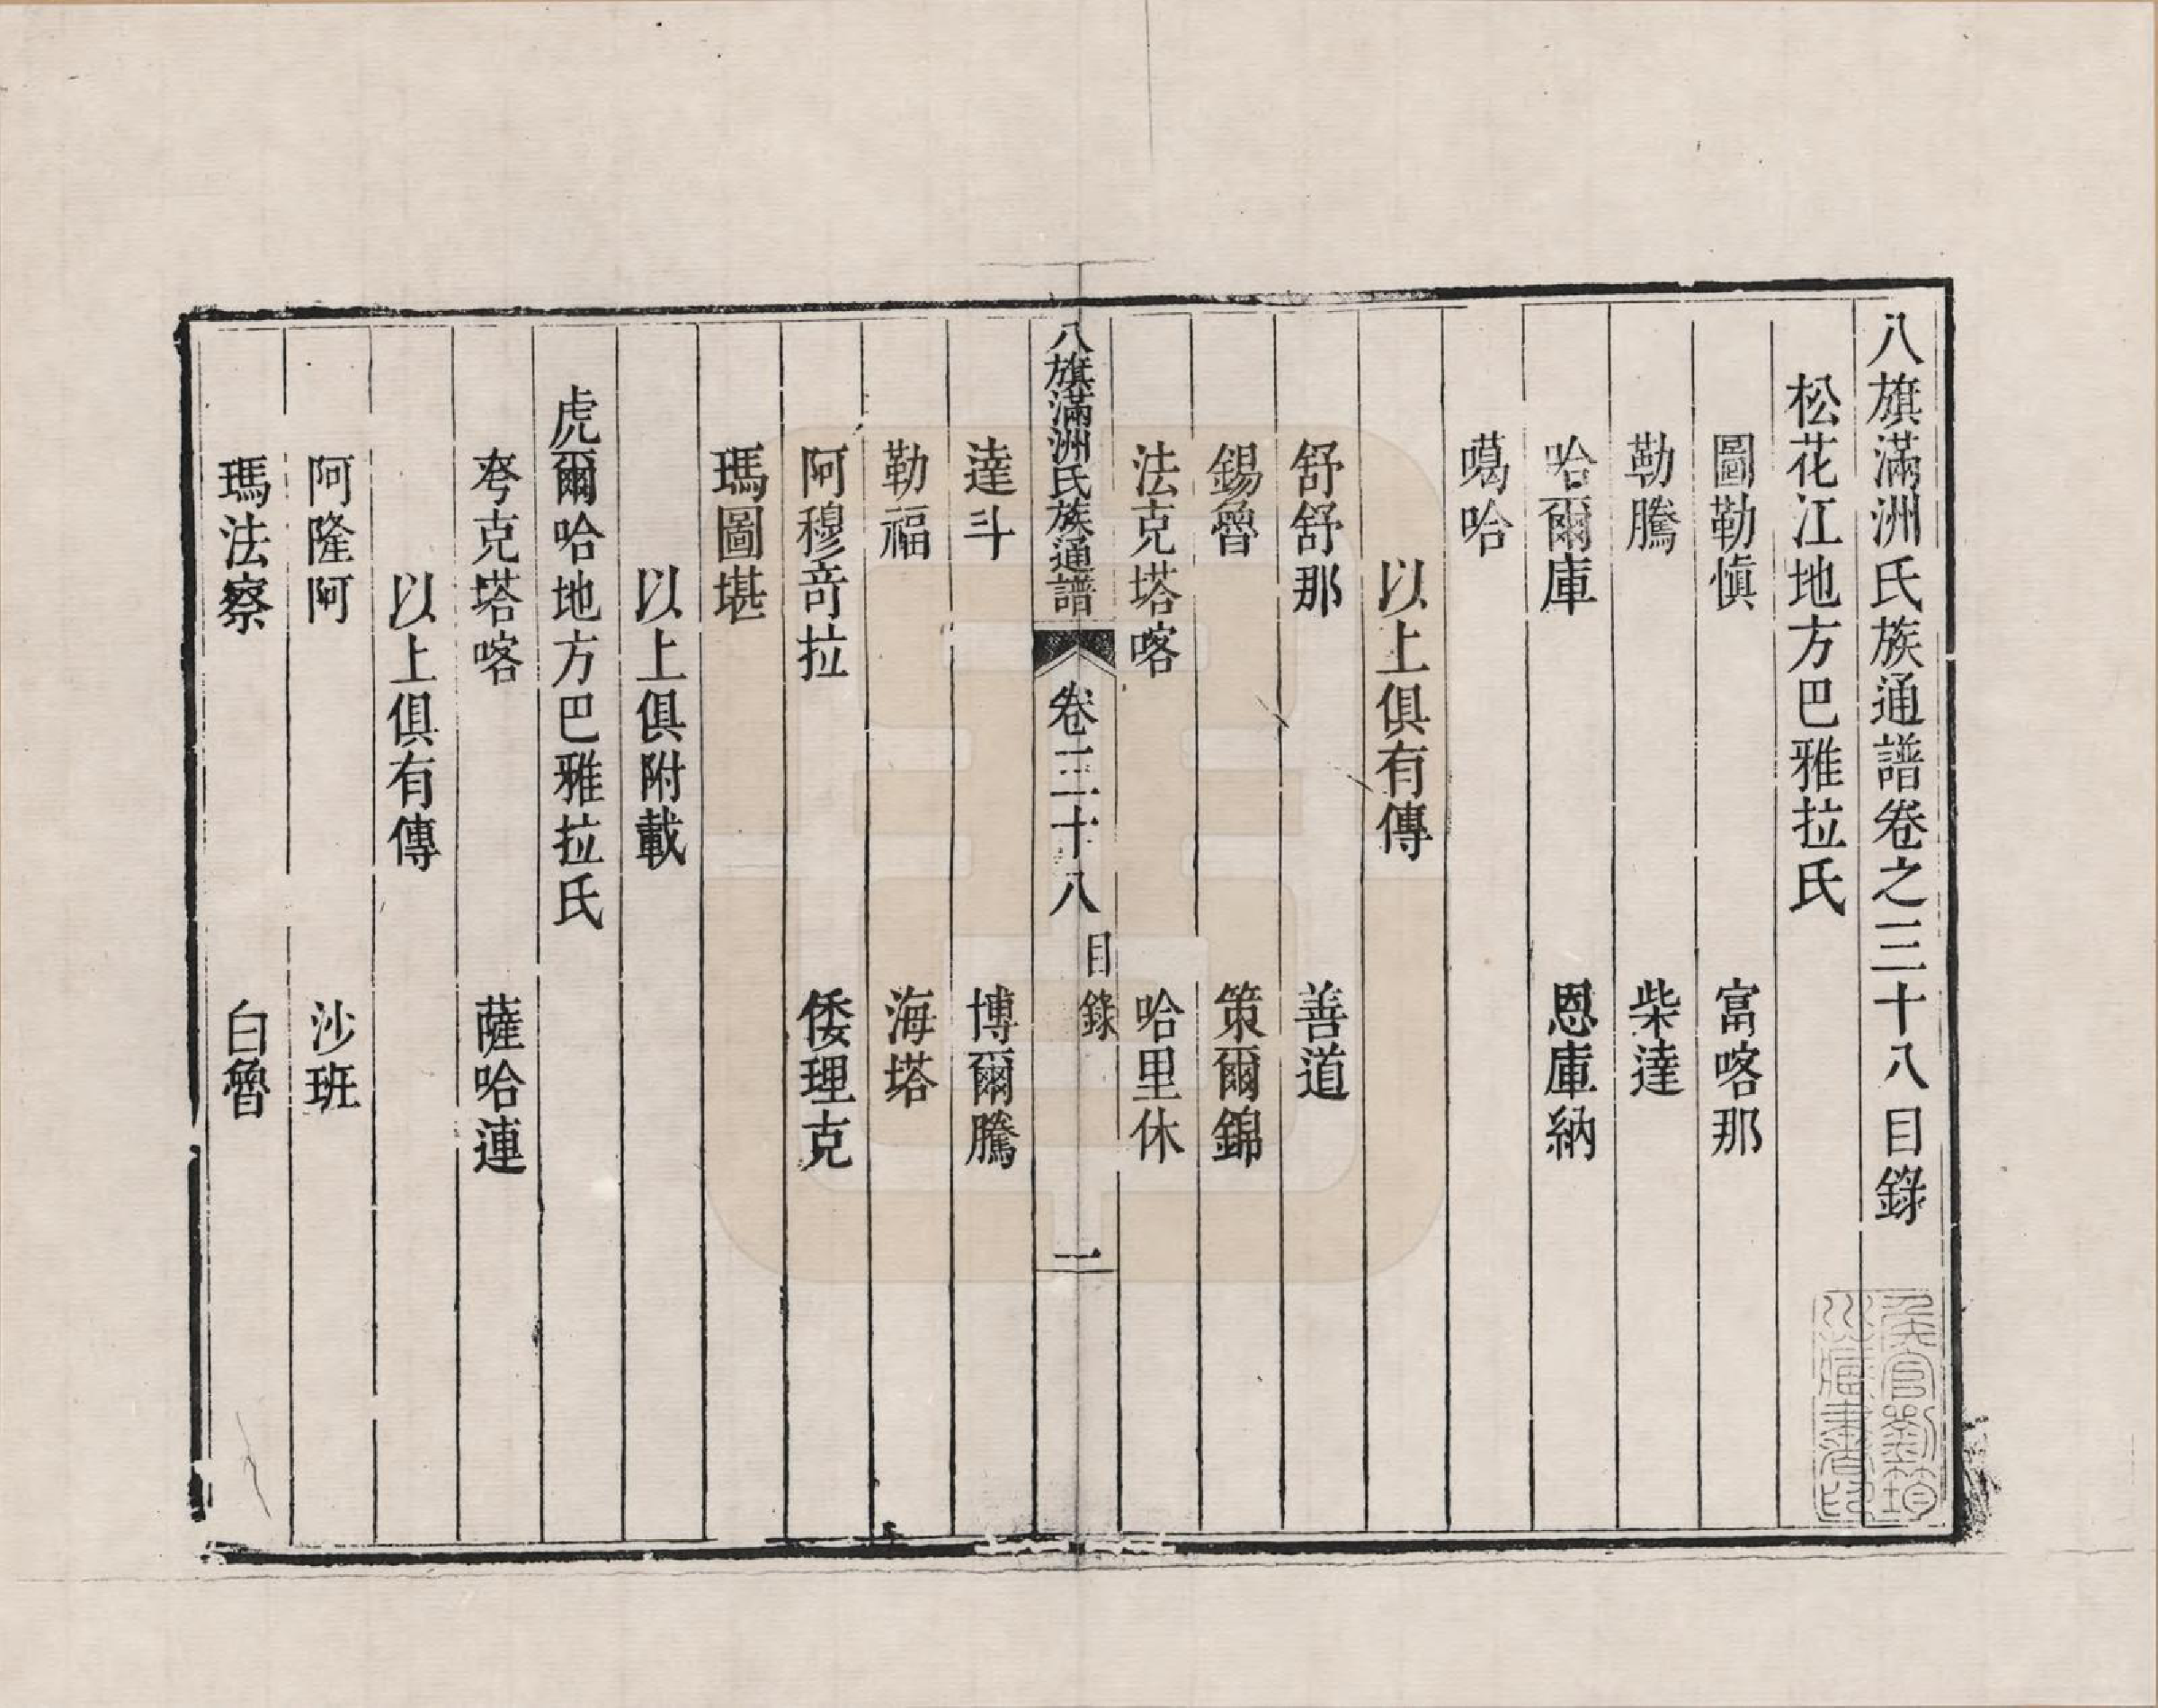 八旗滿洲氏族通譜卷之三十八目錄
松花江地方巴雅拉氏
圖勒慎 富喀那
勒騰 柴達
哈爾庫 恩庫納
噶哈
以上俱有傳
舒舒那 善道
錫魯 策爾錦
法克塔喀 哈里休
八旗滿洲氏族通譜 卷三十八 目錄 一
達斗 博爾騰
勒福 海塔
阿穆奇拉 倭理克
瑪圖堪
以上俱附載
虎爾哈地方巴雅拉氏
夸克塔喀 薩哈連
以上俱有傳
阿隆阿 沙班
瑪法察 白魯
侯官劉筠
川藏書印